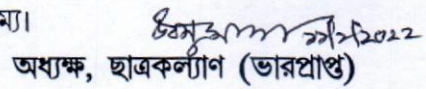 ম্য।
২২/২/2022
অধ্যক্ষ, ছাত্রকল্যাণ (ভারপ্রাপ্ত)